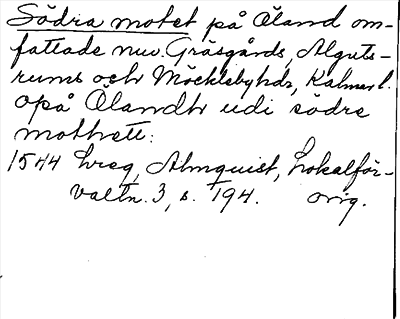 Södra motet på Öland om-
fattade nuv. Gräsgårds, Alguts-
rums och Möcklebyhdr, Kalmar l.
opå Ölandh udi södre
mothett:
1544 Lreg, Almquist, Lokalför-
valtn. 3, s. 194. orig.